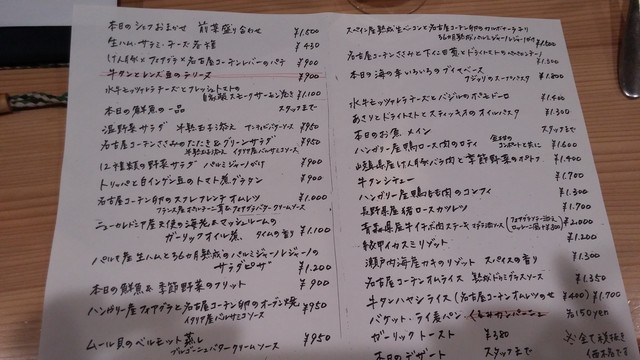 本日のシェフおまかせ 前菜盛り合わせ ¥1,500
生ハム・サラミ・チーズ 各種 ¥430
フォアグラと名古屋コーチンレバーのパテ ¥900
牛タンとレンズ豆のテリーヌ ¥900
水牛モッツァレラチーズとフレッシュトマトの
自家製スモークサーモン ¥1,100
本日の鮮魚の一品 スタッフまで
温野菜サラダ 半熟玉子添え ソース ¥950
名古屋コーチンささみのたたき&グリーンサラダ ¥950
半熟玉子添え イタリア産バルサミコソース
12種類の野菜サラダ パルミジャーノがけ ¥900
トリッパと白インゲン豆のトマト煮グラタン ¥900
名古屋コーチン卵のスフレフレンチオムレツ ¥1,000
フランス産 フォアグラバタークリームソース
ニューカレドニア産天使の海老&マッシュルームの
ガーリックオイル煮 タイムの香り ¥1,100
パルマ産生ハムと36ヵ月熟成のパルミジャーノレジャーノの
サラダピザ ¥1,200
本日の鮮魚&季節野菜のフリット ¥900
ハンガリー産フォアグラと名古屋コーチン卵のオーブン焼 ¥950
イタリア産バルサミコソース
ムール貝のベルモット蒸し ¥950
ブルゴーニュバタークリームソース
スペイン産熟成生ベーコンと名古屋コーチン卵のカルボナーラ
36ヵ月熟成パルミジャーノレジャーノがけ ¥1,500
名古屋コーチンささみと ドライトマトのペペロンチーノ ¥1,300
本日の海の幸いろいろのブイヤベース
スープパスタ ¥1,800
水牛モッツァレラチーズとバジルのポモドーロ ¥1,400
あさりとドライトマトと のオイルパスタ ¥1,300
本日のお魚 メイン スタッフまで
ハンガリー産鴨ロース肉のロティ ¥1,600
コンポートと共に
バラ肉と季節野菜のポトフ ¥1,400
牛タンシチュー ¥1,700
ハンガリー産鴨もも肉のコンフィ ¥1,300
長野県産猪ロースカツレツ ¥1,700
青森県産牛イチボ肉ステーキ マデラ酒ソース ¥2,000
イカスミリゾット ¥1,200
瀬戸内海産カキのリゾット スパイスの香り ¥1,300
名古屋コーチンオムライス 熟成ドミグラスソース ¥1,350
牛タンハヤシライス(名古屋コーチンオムレツのせ ¥400) ¥1,700
バケット・ライ麦パン・ カンパーニュ 各150yen
ガーリックトースト ¥380
※全て税抜き
価格です
本日のデザート スタッフまで